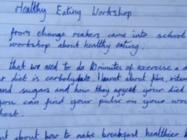 Healthy Eating Workshop
from change makers came into school
workshop about healthy eating.
that we need to do 10 minutes of exercise a
diet is carbohydrate. I learnt about fibre,
and sugars and how they affect your diet
you can find your pulse on your
chest.
about how to make breakfast healthier